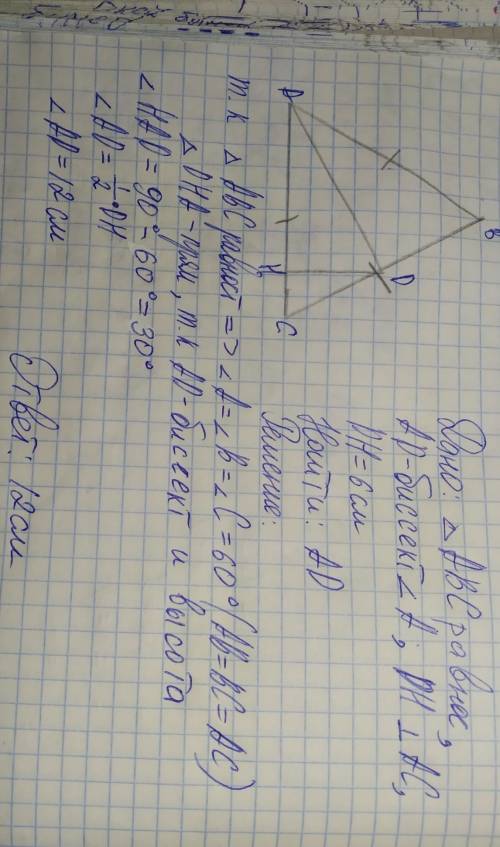 Дано: △ ABC равнос,
AD-биссект ∠ A; DH ⊥ AC,
DH = 6 см
Найти: AD
Решение:
т.к △ ABC равност => ∠ A = ∠ B = ∠ C = 60° (AB = BC = AC)
△ DHA - прям, т.к AD-биссект и высота
∠ HAD = 90° - 60° = 30°
∠ AD = 1/2 · DH
∠ AD = 12 см
Ответ: 12 см
B
A
D
H
C